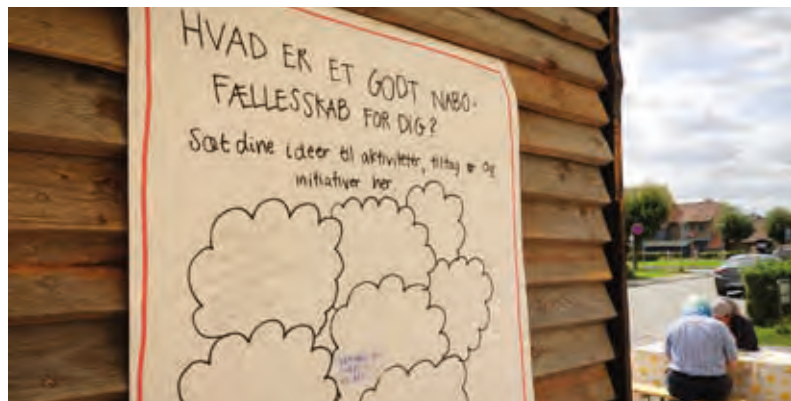 HVAD ER ET GODT NABO-
FÆLLESSKAB FOR DIG?
Sæt dine ideer til aktiviteter, tiltag og
initiativer her